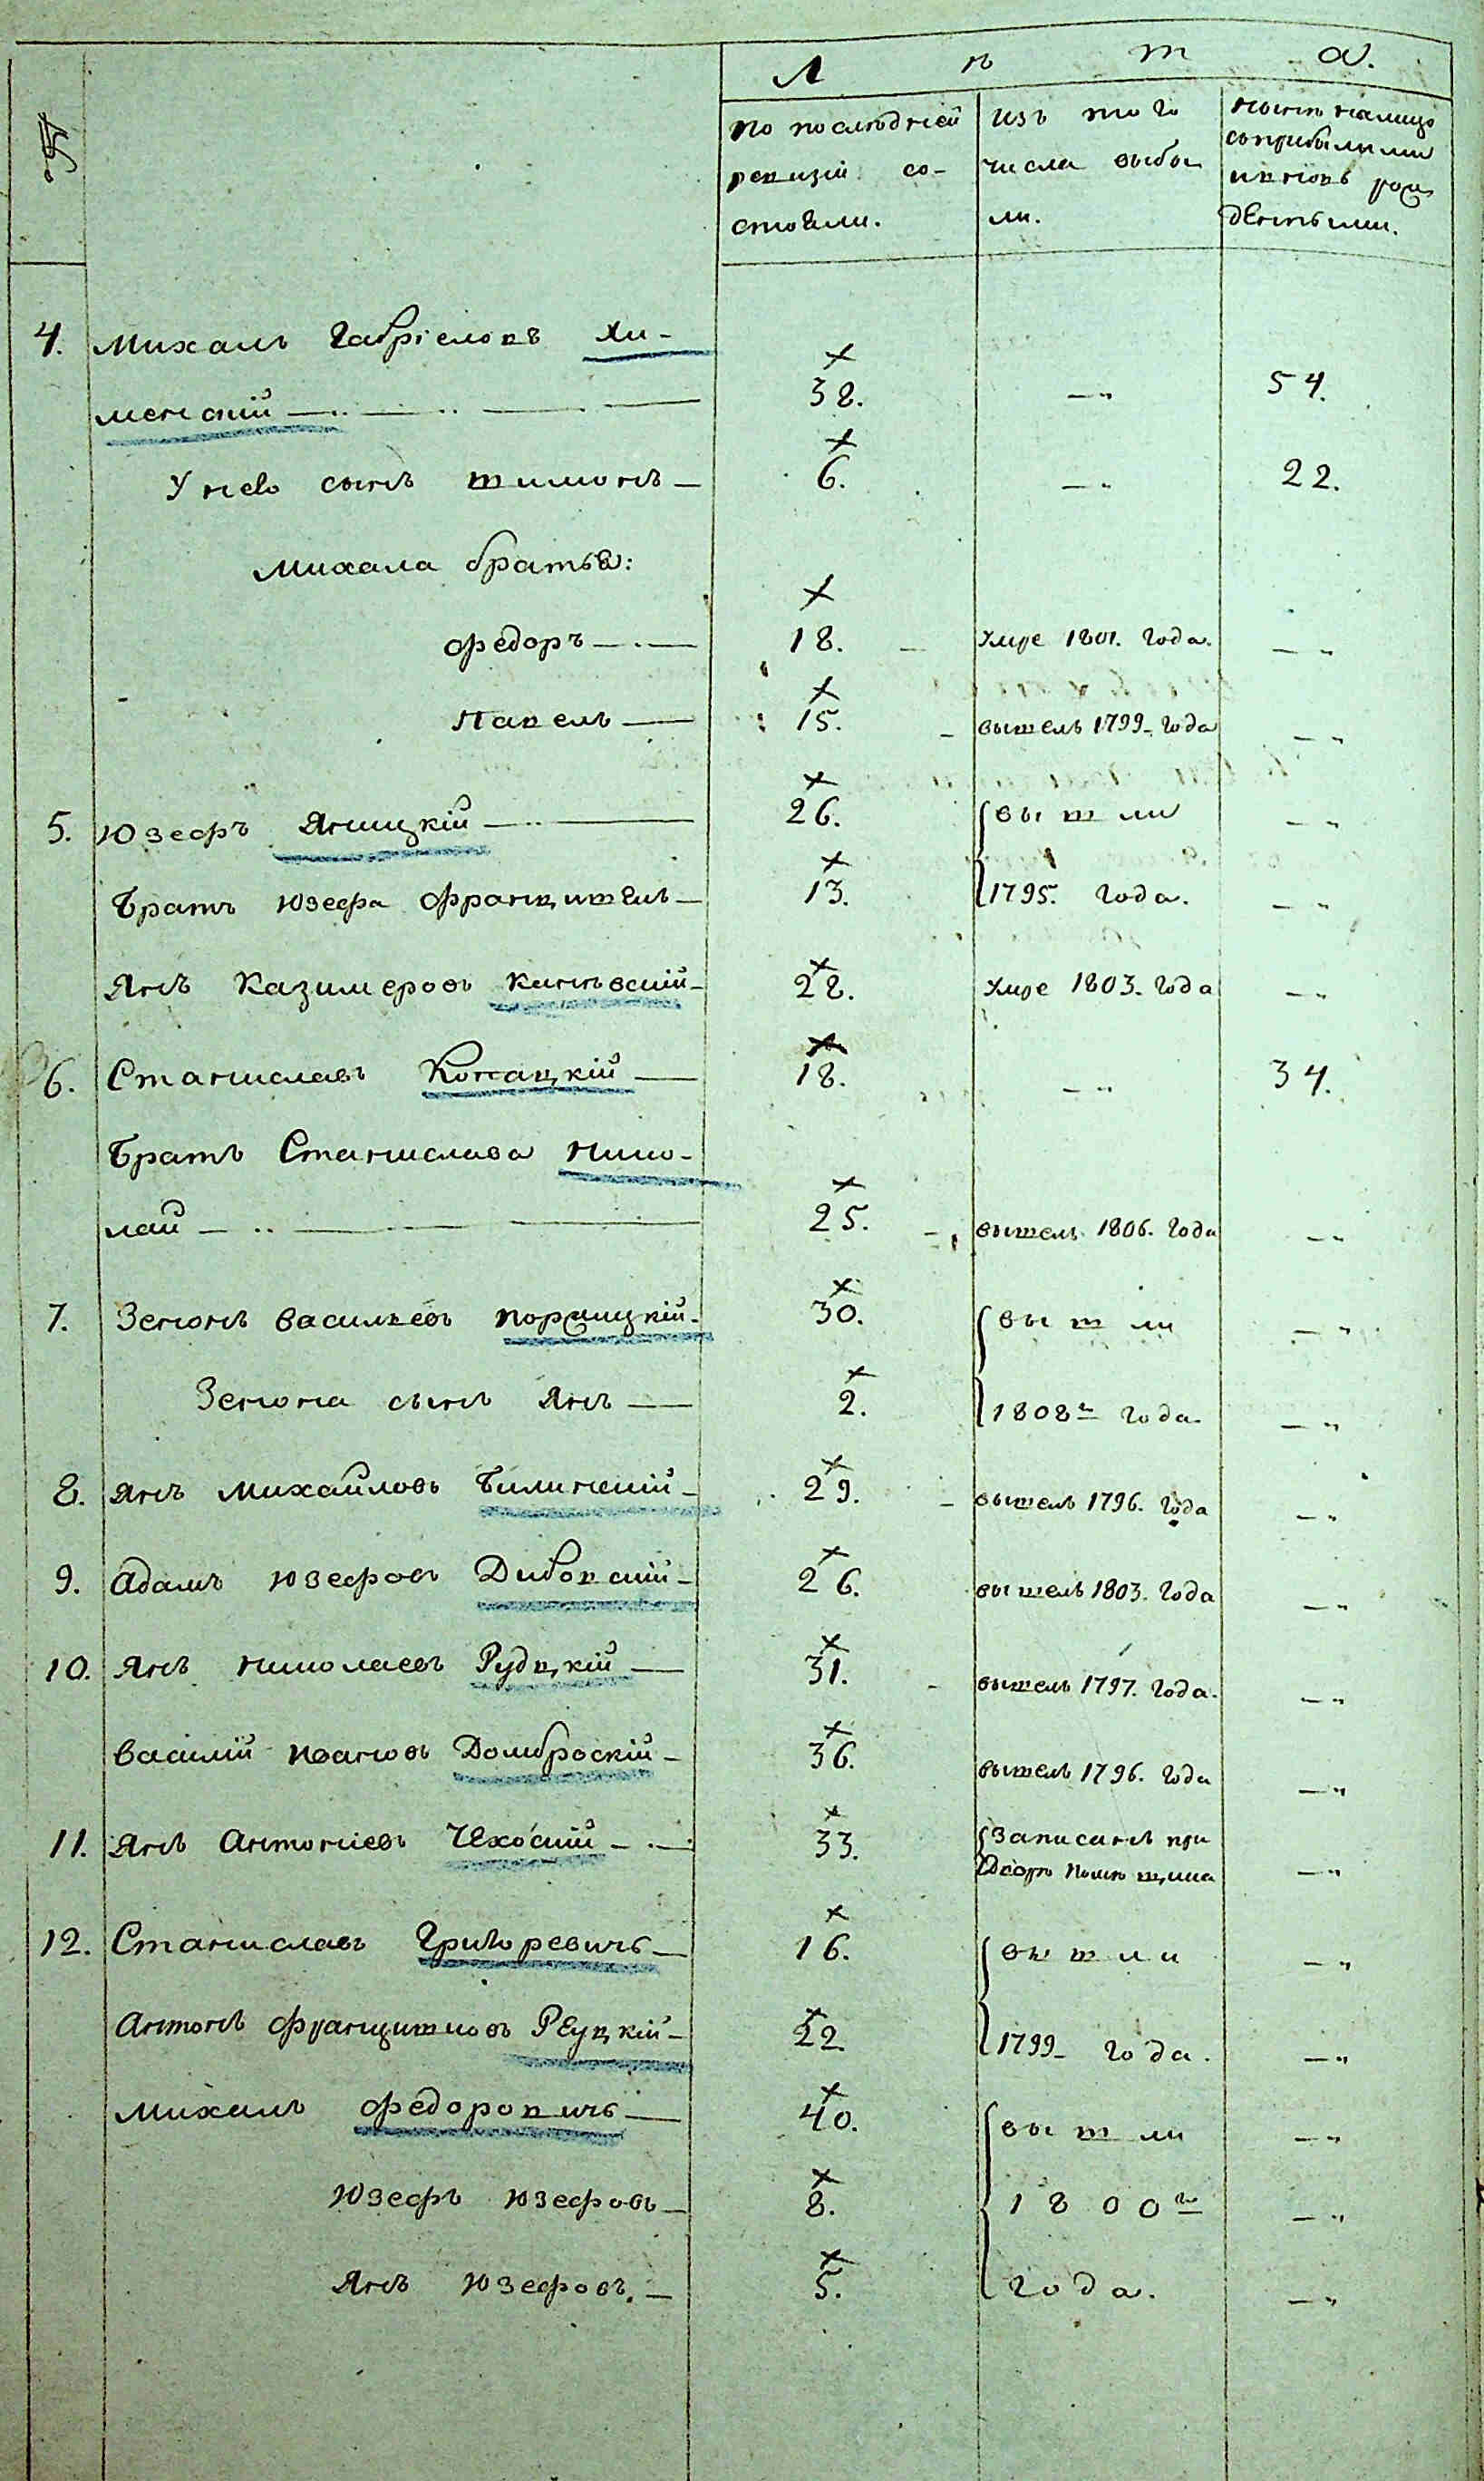 №
Л ѣ т а.
по последней
ревизіи со-
стояли.
изъ того
числа выбы
ли.
нынѣ налицо
съ прибылыми
и вновь рож
денными.
4. Михалъ Габріеловъ Хи-
менскій 38. — 54.
У него сынъ Шимонъ — 6. — 22.
Михала братья:
Федоръ — 18. умре 1801. года.
Павелъ — 15. вышелъ 1799 года
5. Юзефъ Яницкій — 26. вышли
Братъ Юзефа Францишекъ — 13. 1795. года.
Янъ Казимеровъ 28. умре 1803. года
6. Станиславъ Конацкій — 18. — 34.
Братъ Станислава Нико-
лай — 25. вышелъ 1806. года
7. Зенонъ Васильевъ Порицкій 30. вышли
Зенона сынъ Янъ — 2. 1808го года
8. Янъ Михайловъ Билинскій — 29. вышелъ 1796. года
9. Адамъ Юзефовъ Дибовскій — 26. вышелъ 1803. года
10. Янъ Николаевъ Рудцкій — 31. вышелъ 1797. года.
Василій Ивановъ Домброскій — 36. вышелъ 1796. года
11. Янъ Антоніевъ Чехоскій — 33. записанъ при
дворѣ помѣщика
12. Станиславъ Григоревичъ — 16. вышли
Антонъ Францишковъ Реуцкій — 22. 1799 года.
Михалъ Федоровичъ — 40. вышли
Юзефъ Юзефовъ — 8. 1800го
Янъ Юзефовъ. — 5. года.